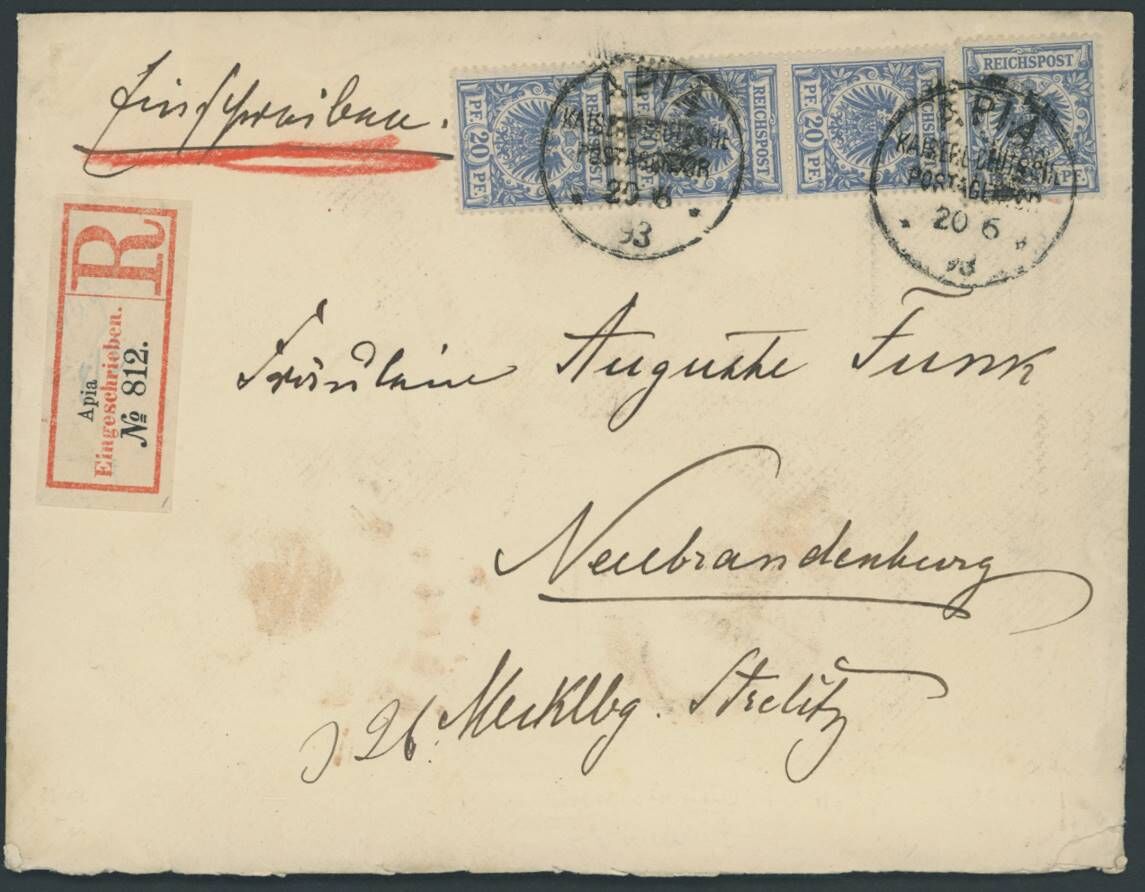 Einschreiben.
REICHSPOST
20 PF. 20 PF.
REICHSPOST
20 PF.
REICHSPOST
20 PF.
REICHSPOST
PF.
APIA
KAISERL. DEUTSCHE
POSTAGENTUR
* 20 6 *
93
APIA
KAISERL. DEUTSCHE
POSTAGENTUR
* 20 6 *
93
R
Apia
Eingeschrieben.
№ 812.
Fräulein Auguste Funk
Neubrandenburg
Mecklbg. Strelitz